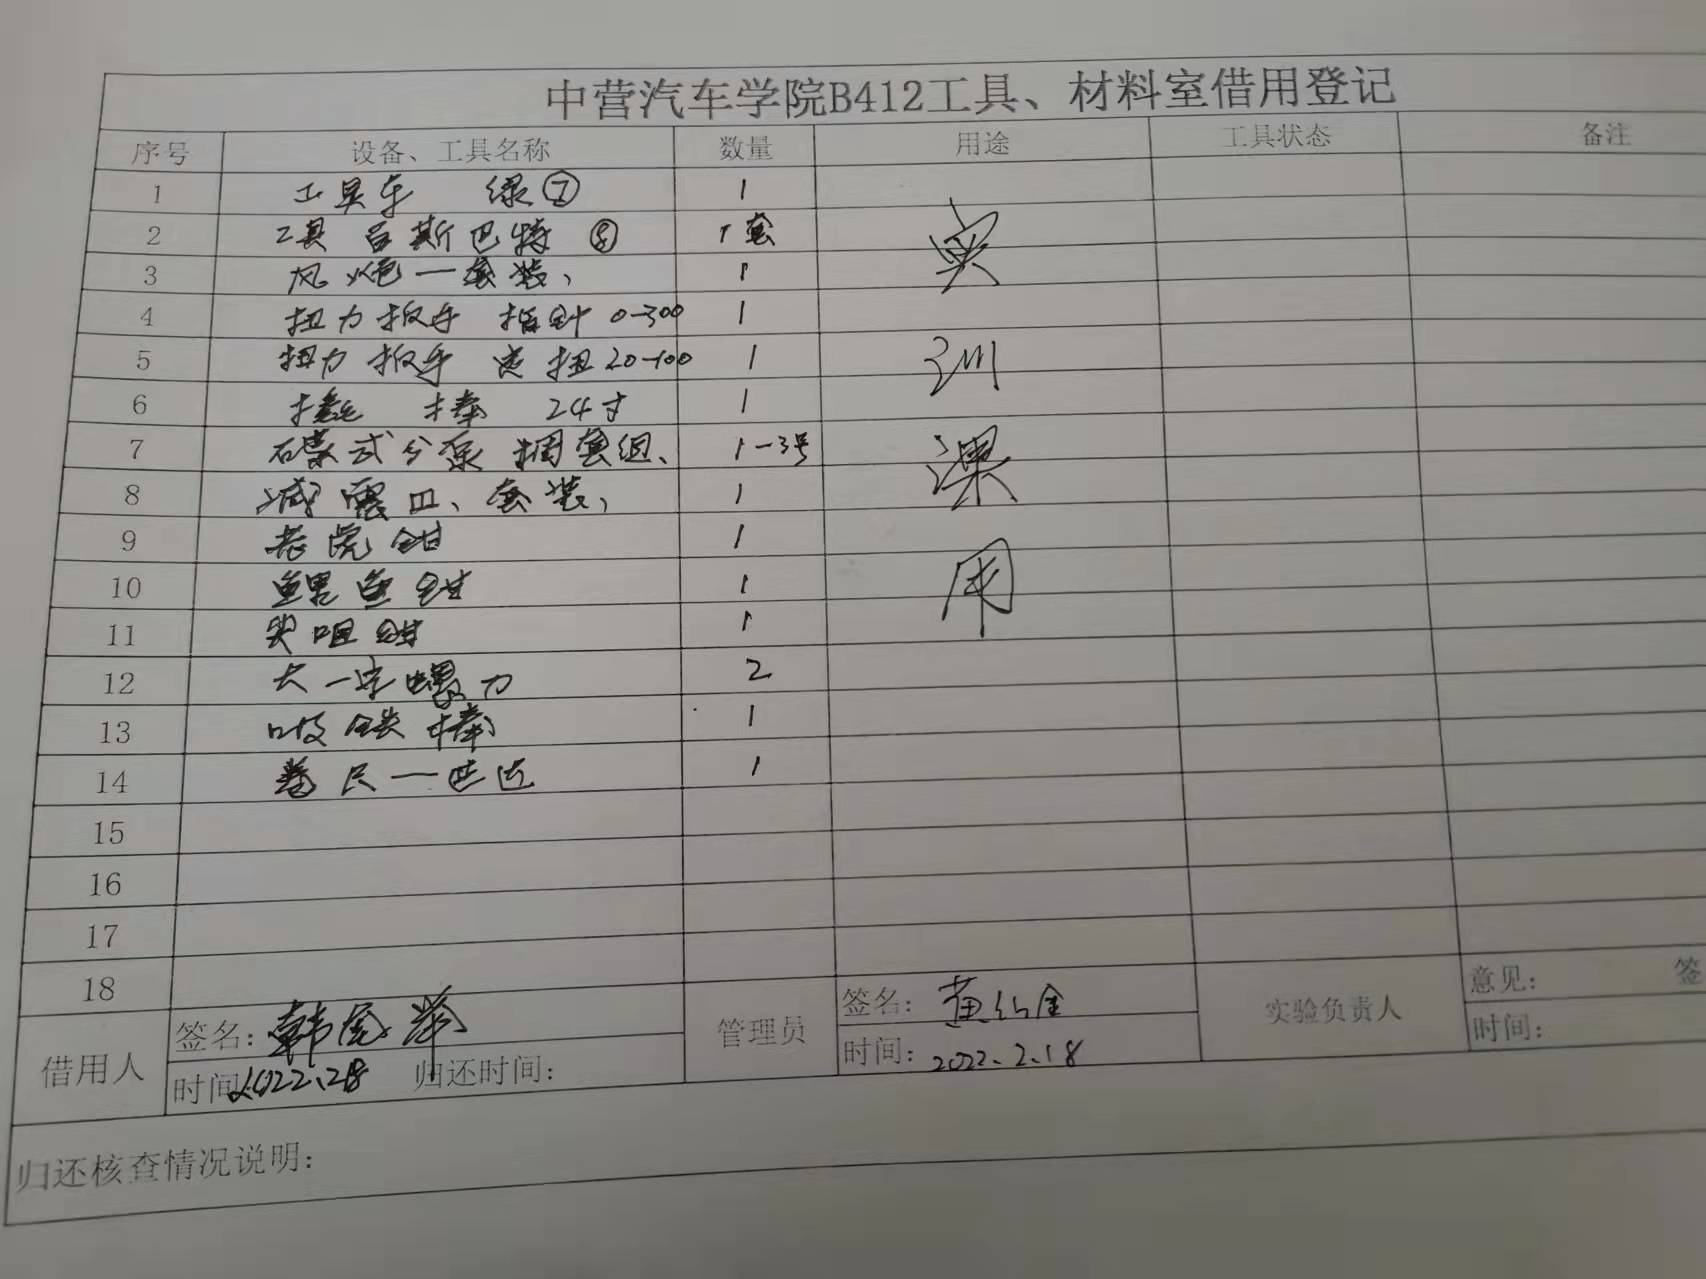 中营汽车学院B412工具、材料室借用登记
序号 设备、工具名称 数量 用途 工具状态 备注
1 工具车 绿⑦ 1
2 工具 百斯巴特 ⑧ 1套
3 风炮一套装、 1
4 扭力扳手 指针 0-300 1
5 扭力扳手 扭20-100 1
6 棒 24寸 1
7 碟式分泵 调套组、 1-3号
8 减震 套装、 1
9 老虎钳 1
10 鲤鱼钳 1
11 尖咀钳 1
12 大一字螺刀 2
13 吸铁棒 1
14 卷尺一 1
实训课用
15
16
17
18
借用人 签名: 韩 管理员 签名: 黄 实验负责人 意见: 签
时间 2022.2.18 归还时间: 时间: 2022.2.18 时间:
归还核查情况说明: